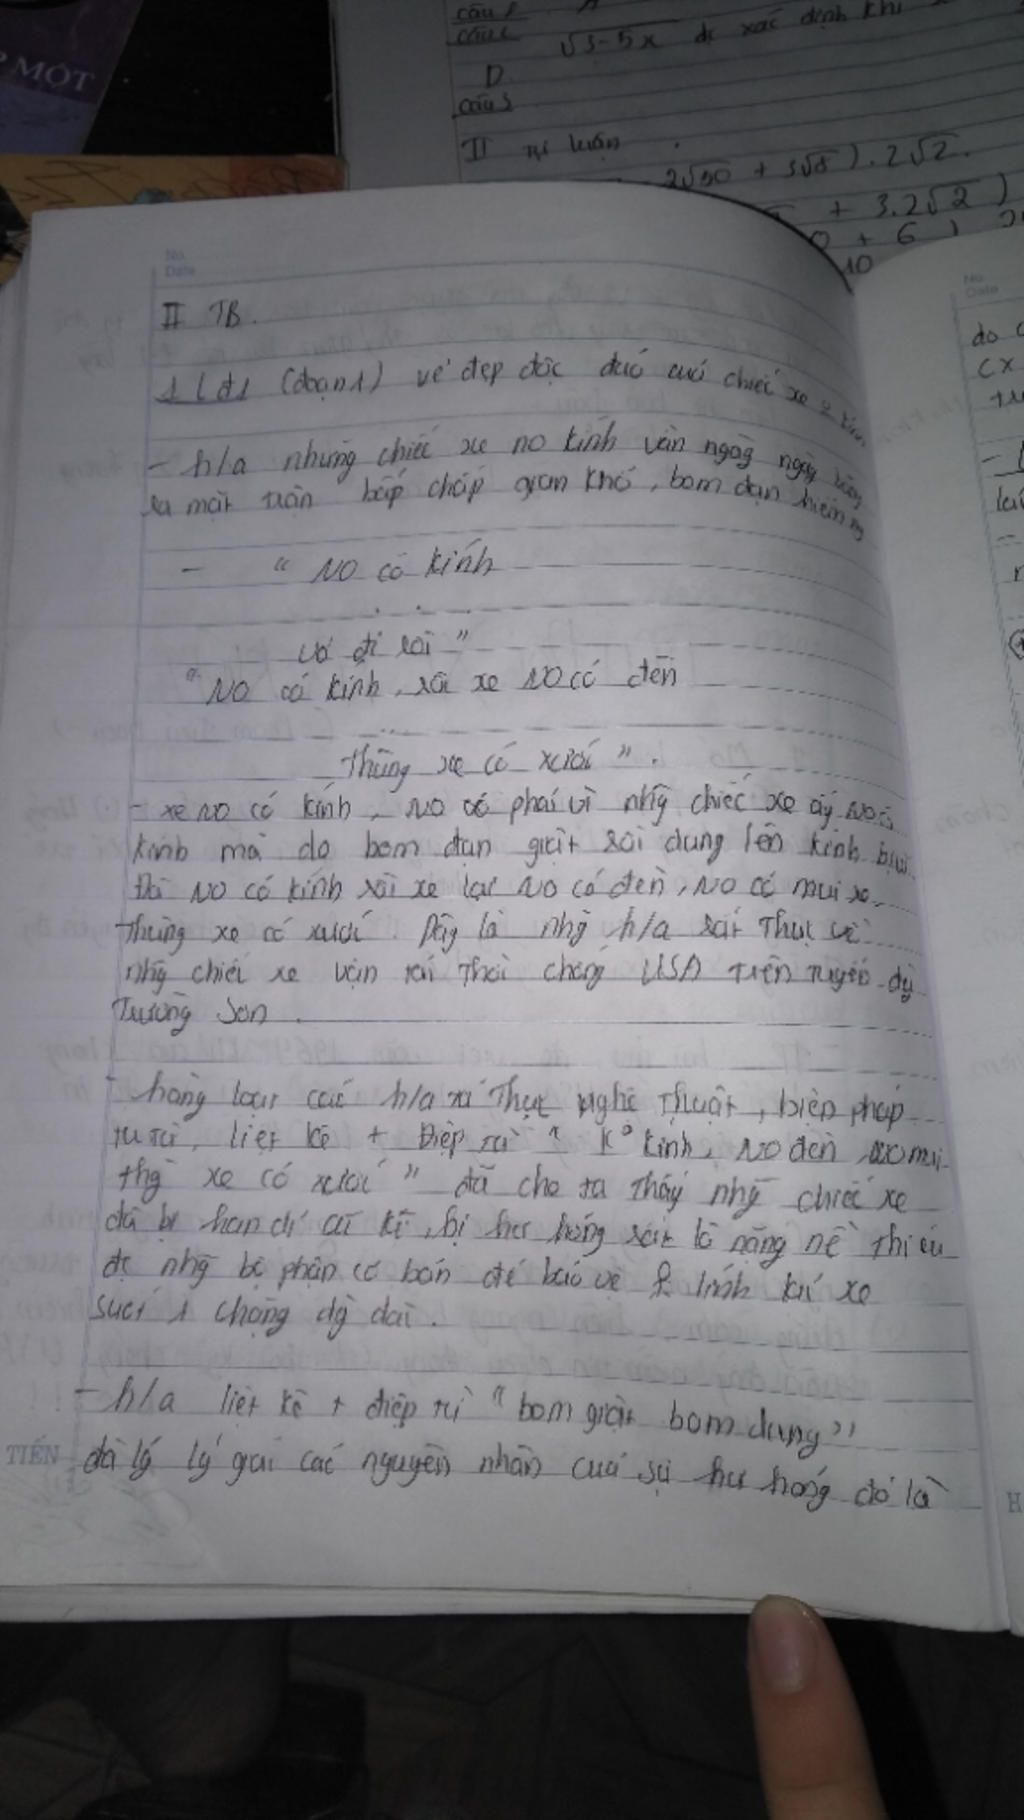 P MỘT
câu 1
câu 2
√3-5x đc xác định khi
D
câu 3
II Tự luận
2√50 + 3√8 ) . 2√2.
+ 3.2√2 )
0 + 6 )
10
No.
Date
II TB.
1 (đoạn 1) vẻ đẹp độc đáo của chiếc xe
- h/a những chiếc xe no kính vẫn ngày ngày băng
ra mặt trận bấp chấp gian khổ, bom đạn hiểm
- " NO có kính
. . .
vỡ đi rồi "
" NO có kính, rồi xe NO có đèn
...
Thùng xe có xước ".
- xe NO có kính, NO có phải vì nhg̃ chiếc xe ấy NO có
kính mà do bom đạn giật rồi dung lên kính bị
Đã NO có kính rồi xe lại NO có đèn, NO có mui xe,
thùng xe có xước. Đây là nhg̃ h/a rất thực về
nhg̃ chiếc xe vận tải thời chống USA trên tuyến đg̀
Trường Sơn.
- hàng loạt các h/a tả thực nghệ thuật, biện pháp
tu từ, liệt kê + Điệp từ " ko kính, NO đèn NO mui
thg̀ xe có xước " đã cho ta thấy nhg̃ chiếc xe
đã bị hạn chế bị hư hỏng rất là nặng nề thiếu
đi nhg̃ bộ phận cơ bản để bảo vệ lính lái xe
suốt 1 chặng đg̀ dài.
- h/a liệt kê + điệp từ " bom giật bom dung "
đã lý lý giải các nguyên nhân của sự hư hỏng đó là
TIẾN
No.
Date
do
H